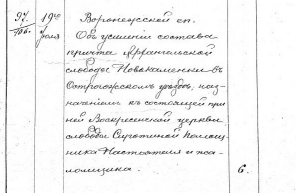 97/706. 19го Июля Воронежской еп.
Объ усиленіи состава
причта Архангельской
слободы Новокаменки въ
Острогожскомъ уѣздѣ, наз-
наченіемъ къ состоящей при
ней Воскресенской церкви
слободы Сиротиной помощ-
ника Настоятеля и пса-
ломщика.
6.